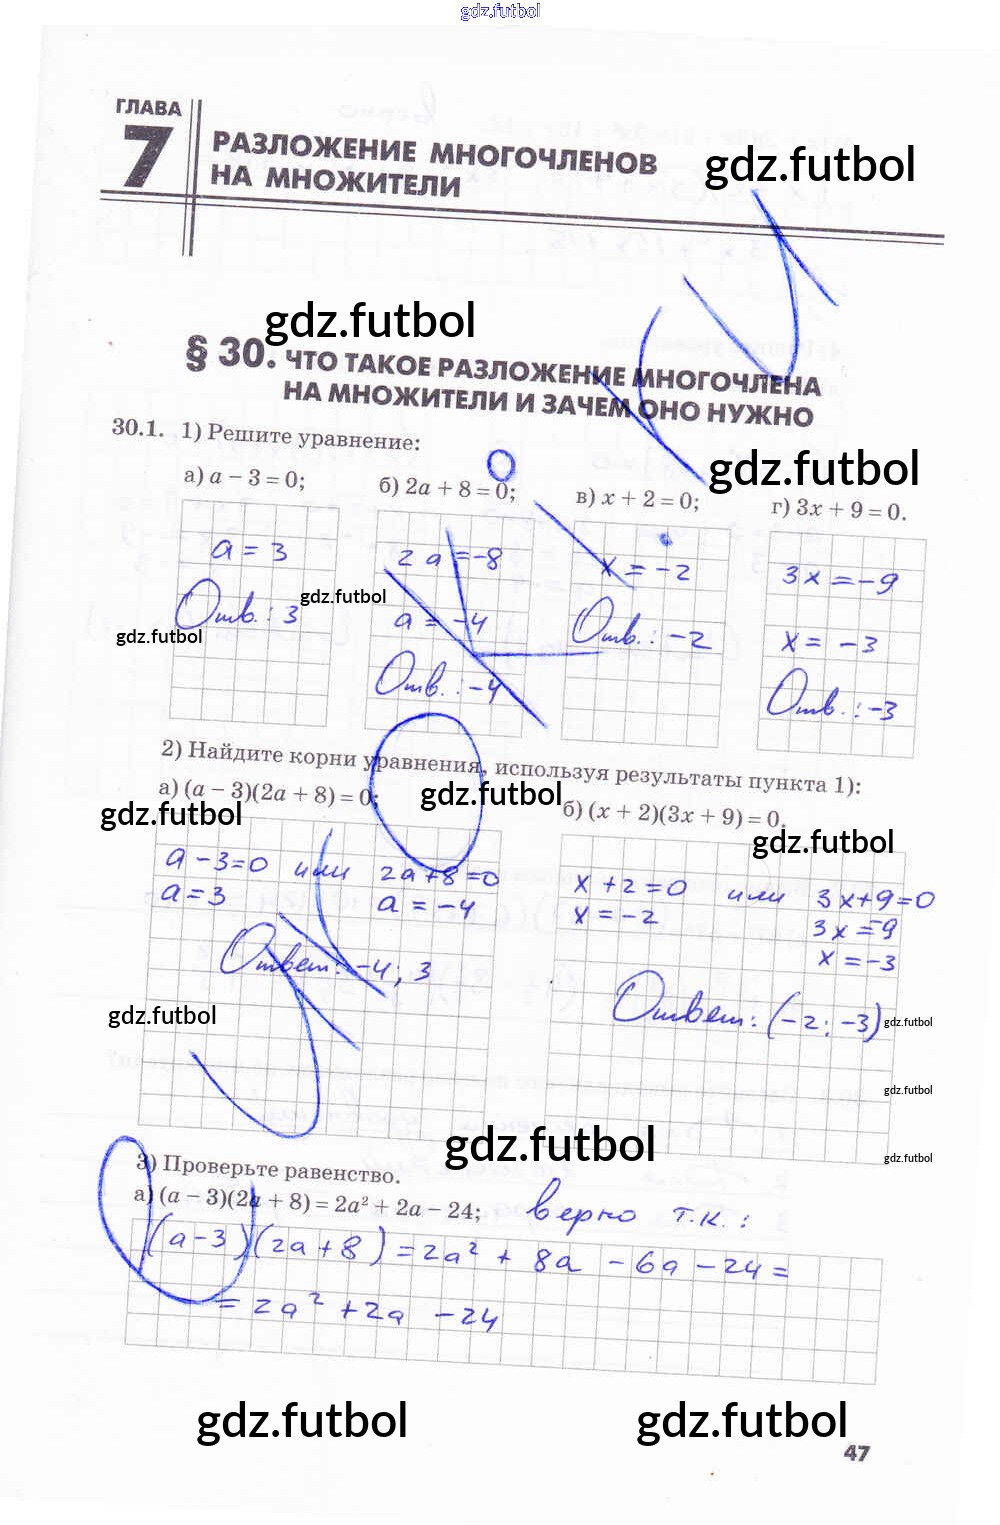 gdz.futbol
ГЛАВА
7
РАЗЛОЖЕНИЕ МНОГОЧЛЕНОВ
НА МНОЖИТЕЛИ
gdz.futbol
gdz.futbol
§ 30. ЧТО ТАКОЕ РАЗЛОЖЕНИЕ МНОГОЧЛЕНА
НА МНОЖИТЕЛИ И ЗАЧЕМ ОНО НУЖНО
30.1. 1) Решите уравнение:
gdz.futbol
а) a − 3 = 0; б) 2a + 8 = 0; в) x + 2 = 0; г) 3x + 9 = 0.
a = 3
Отв.: 3
2a = -8
a = -4
Отв.: -4
x = -2
Отв.: -2
3x = -9
x = -3
Отв.: -3
gdz.futbol
gdz.futbol
2) Найдите корни уравнения, используя результаты пункта 1):
а) (a − 3)(2a + 8) = 0; б) (x + 2)(3x + 9) = 0.
gdz.futbol
gdz.futbol
gdz.futbol
a - 3 = 0 или 2a + 8 = 0
a = 3 a = -4
Ответ: -4; 3
x + 2 = 0 или 3x + 9 = 0
x = -2 3x = -9
x = -3
Ответ: (-2; -3)
gdz.futbol
gdz.futbol
gdz.futbol
gdz.futbol
gdz.futbol
3) Проверьте равенство.
а) (a − 3)(2a + 8) = 2a² + 2a − 24; верно т.к.:
(a - 3)(2a + 8) = 2a² + 8a - 6a - 24 =
= 2a² + 2a - 24
gdz.futbol
gdz.futbol
47